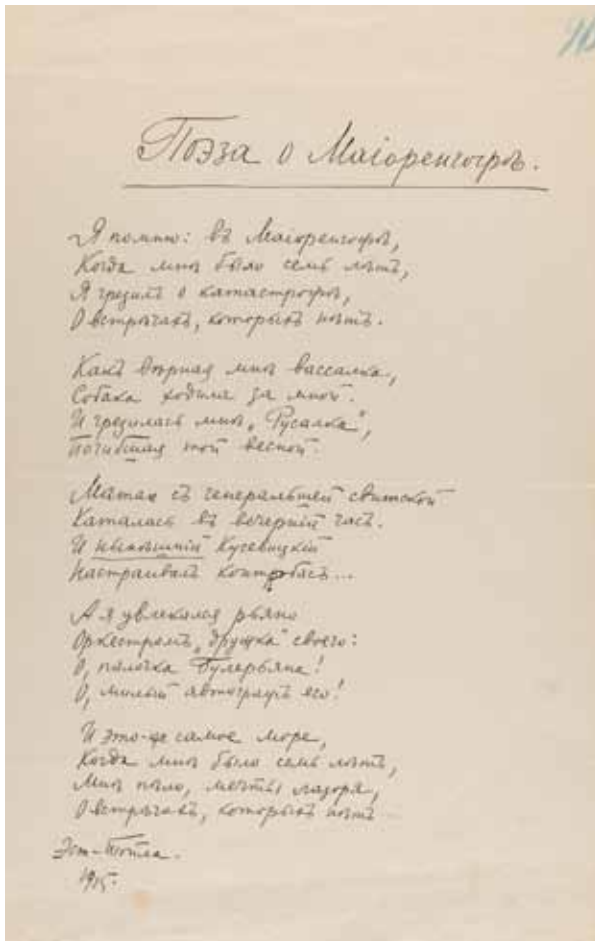 Поэза о Маіоренгофѣ.
Я помню: въ Маіоренгофѣ,
Когда мнѣ было семь лѣтъ,
Я грезилъ о катастрофѣ,
О встрѣчахъ, которыхъ нѣтъ.
Какъ вѣрная мнѣ вассалка,
Собака ходила за мной.
И грезилась мнѣ „Русалка",
Погибшая той весной.
Maman съ генеральшей свитской
Каталась въ вечерній часъ.
И нынѣшній Кусевицкій
Настраивалъ контрбасъ...
А я увлекался рьяно
Оркестромъ „дружка" своего:
О, палочка Булерьяна!
О, милый автографъ его!
И это-же самое море,
Когда мнѣ было семь лѣтъ,
Мнѣ пѣло, мечты лазоря,
О встрѣчахъ, которыхъ нѣтъ
Эст-Тойла.
1915.